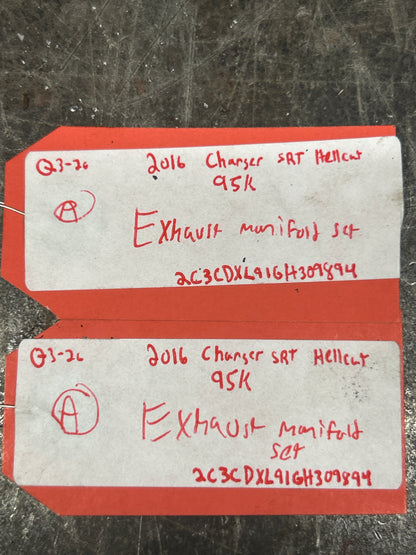 Q3-26 2016 Charger SRT Hellcat
95K
A
Exhaust manifold set
2C3CDXL91GH309894
Q3-26 2016 Charger SRT Hellcat
95K
A
Exhaust manifold
set
2C3CDXL91GH309894